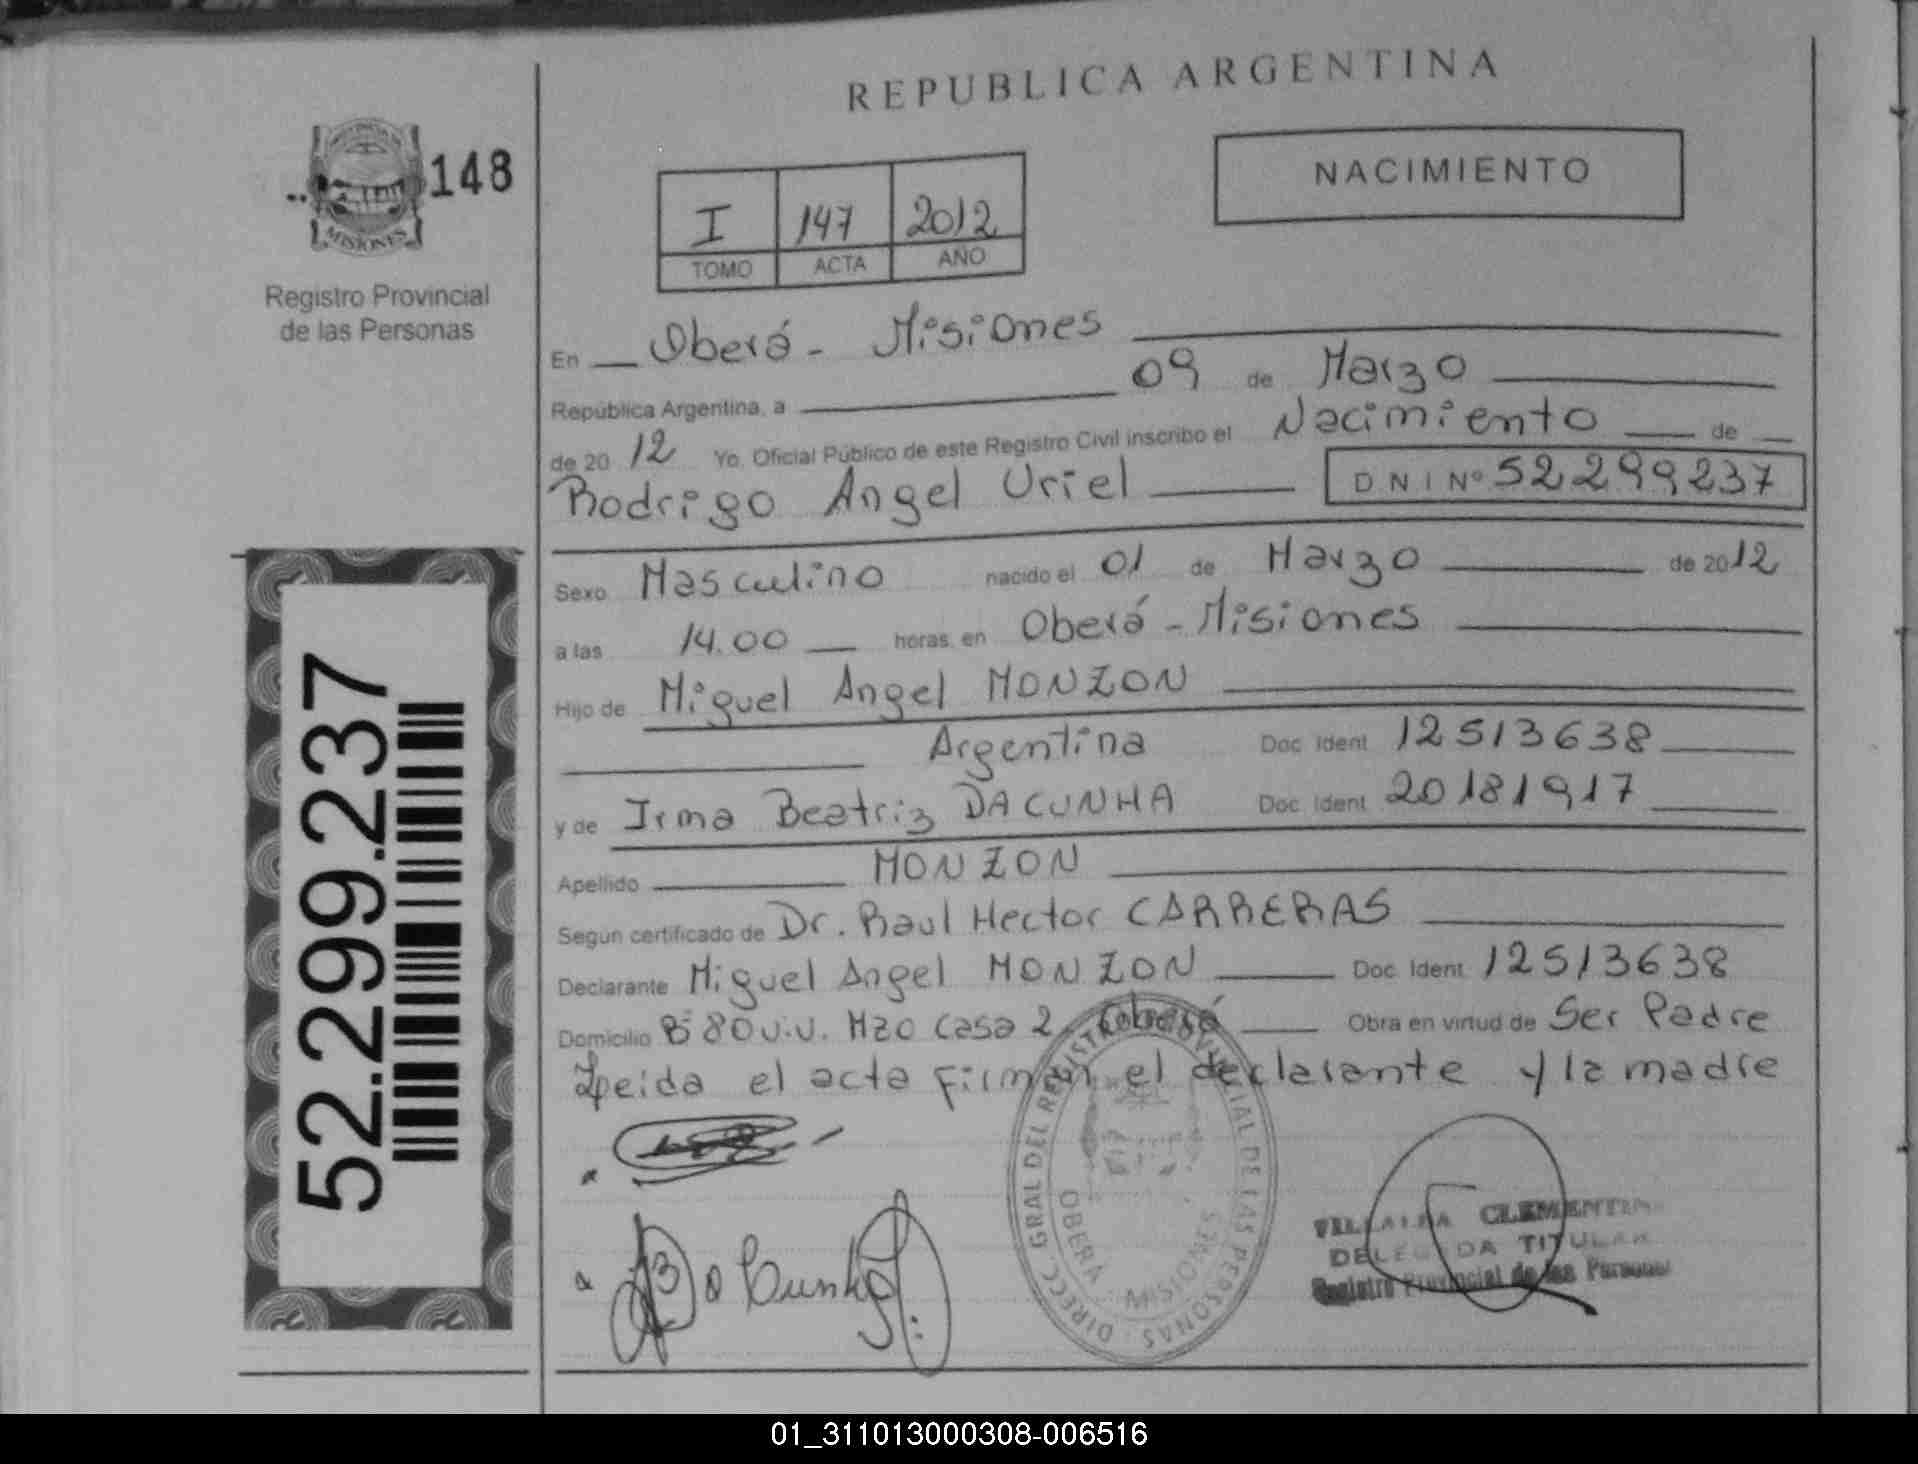 REPUBLICA ARGENTINA
148
MISIONES
Registro Provincial
de las Personas
NACIMIENTO
I 147 2012
TOMO ACTA AÑO
En Oberá - Misiones
República Argentina, a 09 de Marzo
de 20 12 Yo, Oficial Público de este Registro Civil inscribo el Nacimiento de
Rodrigo Angel Uriel D N I Nº 52299237
Sexo Masculino nacido el 01 de Marzo de 2012
a las 14.00 horas, en Oberá - Misiones
Hijo de Miguel Angel MONZON
Argentina Doc. Ident. 12513638
y de Irma Beatriz DA CUNHA Doc. Ident. 20181917
Apellido MONZON
Según certificado de Dr. Raul Hector CARRERAS
Declarante Miguel Angel MONZON Doc. Ident. 12513638
Domicilio Bº 80 v.v. Mzo Casa 2 Oberá Obra en virtud de Ser Padre
Leida el acta firman el declarante y la madre
52.299.237
DIRECC. GRAL DEL REGISTRO PROVINCIAL DE LAS PERSONAS
OBERA - MISIONES
VILLALBA CLEMENTINA
DELEGADA TITULAR
Registro Provincial de las Personas
01_311013000308-006516